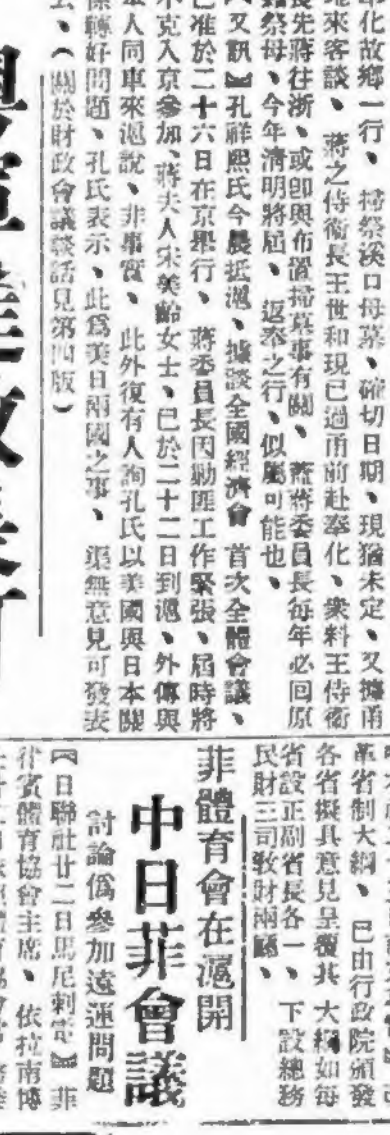 奉化故鄉一行、掃祭溪口母墓、確切日期、現猶未定、又據甬
地來客談、蔣之侍衛長王世和現已過甬前赴奉化、衆料王侍衛
長先蔣往浙、或卽與布置掃墓事有關、蓋蔣委員長每年必回原
籍祭母、今年清明將屆、返奉之行、似屬可能也、
【又訊】孔祥熙氏今晨抵滬、據談全國經濟會 首次全體會議、
已准於二十六日在京舉行、蔣委員長因勦匪工作緊張、屆時將
不克入京參加、蔣夫人宋美齡女士、已於二十二日到滬、外傳與
本人同車來滬說、非事實、此外復有人詢孔氏以美國與日本關
係轉好問題、孔氏表示、此爲美日兩國之事、渠無意見可發表
云、（關於財政會議談話見第四版）
革省制大綱、已由行政院頒發
各省擬具意見呈覆其大綱如每
省設正副省長各一、下設總務
民財三司敎財兩廳、
菲體育會在滬開
中日菲會議
討論僞參加遠運問題
【日聯社廿二日馬尼刺電】菲
律賓體育協會主席、依拉南博